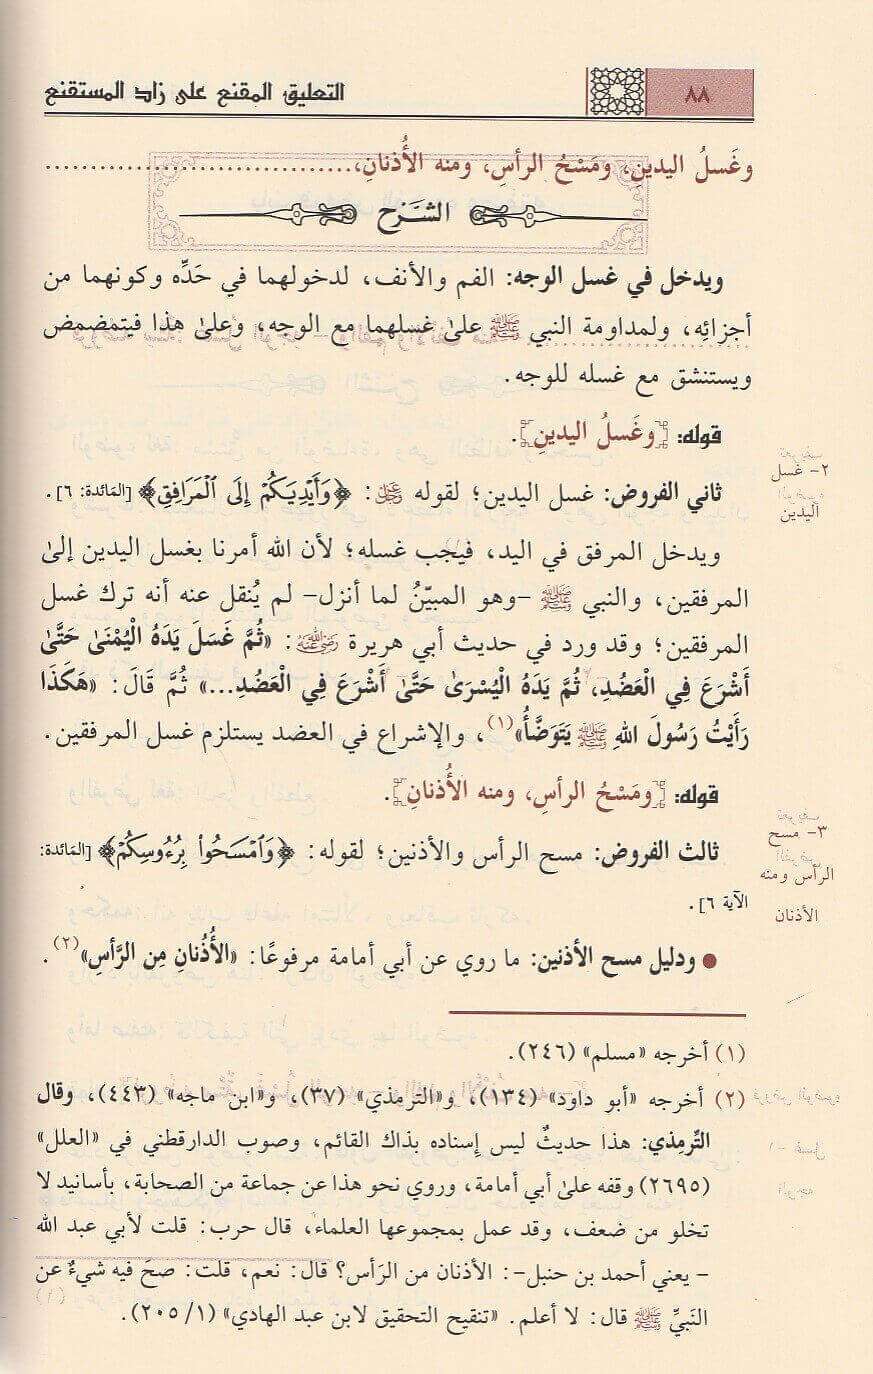 ٨٨
التعليق المقنع على زاد المستقنع
وغَسلُ اليدينِ، ومَسْحُ الرأسِ، ومنه الأُذنانِ،..................................
الشَّرح
ويدخل في غسل الوجه: الفم والأنف، لدخولهما في حَدِّه وكونهما من
أجزائِه، ولمداومة النبي ﷺ علىٰ غسلهما مع الوجه، وعلىٰ هذا فيتمضمض
ويستنشق مع غسله للوجه.
قوله: [وغَسلُ اليدينِ].
٢- غسل
اليدين
ثاني الفروض: غسل اليدين؛ لقوله ﷻ: ﴿وَأَيْدِيَكُمْ إِلَى ٱلْمَرَافِقِ﴾ [المَائدة: ٦].
ويدخل المرفق في اليد، فيجب غسله؛ لأن الله أمرنا بغسل اليدين إلىٰ
المرفقين، والنبي ﷺ -وهو المبيّنُ لما أنزل- لم يُنقل عنه أنه ترك غسل
المرفقين؛ وقد ورد في حديث أبي هريرة رَضِيَ اللَّهُ عَنْهُ: «ثُمَّ غَسَلَ يَدَهُ الْيُمْنَىٰ حَتَّىٰ
أَشْرَعَ فِي الْعَضُدِ، ثُمَّ يَدَهُ الْيُسْرَىٰ حَتَّىٰ أَشْرَعَ فِي الْعَضُدِ...» ثُمَّ قَالَ: «هَكَذَا
رَأَيْتُ رَسُولَ اللهِ ﷺ يَتَوَضَّأُ»(١)، والإشراع في العضد يستلزم غسل المرفقين.
قوله: [ومَسْحُ الرأسِ، ومنه الأُذنانِ].
٣- مسح
الرأس ومنه
الأذنان
ثالث الفروض: مسح الرأس والأذنين؛ لقوله: ﴿وَٱمْسَحُوا۟ بِرُءُوسِكُمْ﴾ [المَائدة:
الآية ٦].
● ودليل مسح الأذنين: ما روي عن أبي أمامة مرفوعًا: «الأُذُنانِ مِن الرَّأسِ»(٢).
(١) أخرجه «مسلم» (٢٤٦).
(٢) أخرجه «أبو داود» (١٣٤)، و«الترمذي» (٣٧)، و«ابن ماجه» (٤٤٣)، وقال
التِّرمذي: هذا حديثٌ ليس إسناده بذاك القائم، وصوب الدارقطني في «العلل»
(٢٦٩٥) وقفه علىٰ أبي أمامة، وروي نحو هذا عن جماعة من الصحابة، بأسانيد لا
تخلو من ضعف، وقد عمل بمجموعها العلماء، قال حرب: قلت لأبي عبد الله
- يعني أحمد بن حنبل-: الأذنان من الرَأس؟ قال: نعم، قلت: صحَ فيه شيءٌ عن
النَبيِّ ﷺ قال: لا أعلم. «تنقيح التحقيق لابن عبد الهادي» (١/ ٢٠٥).